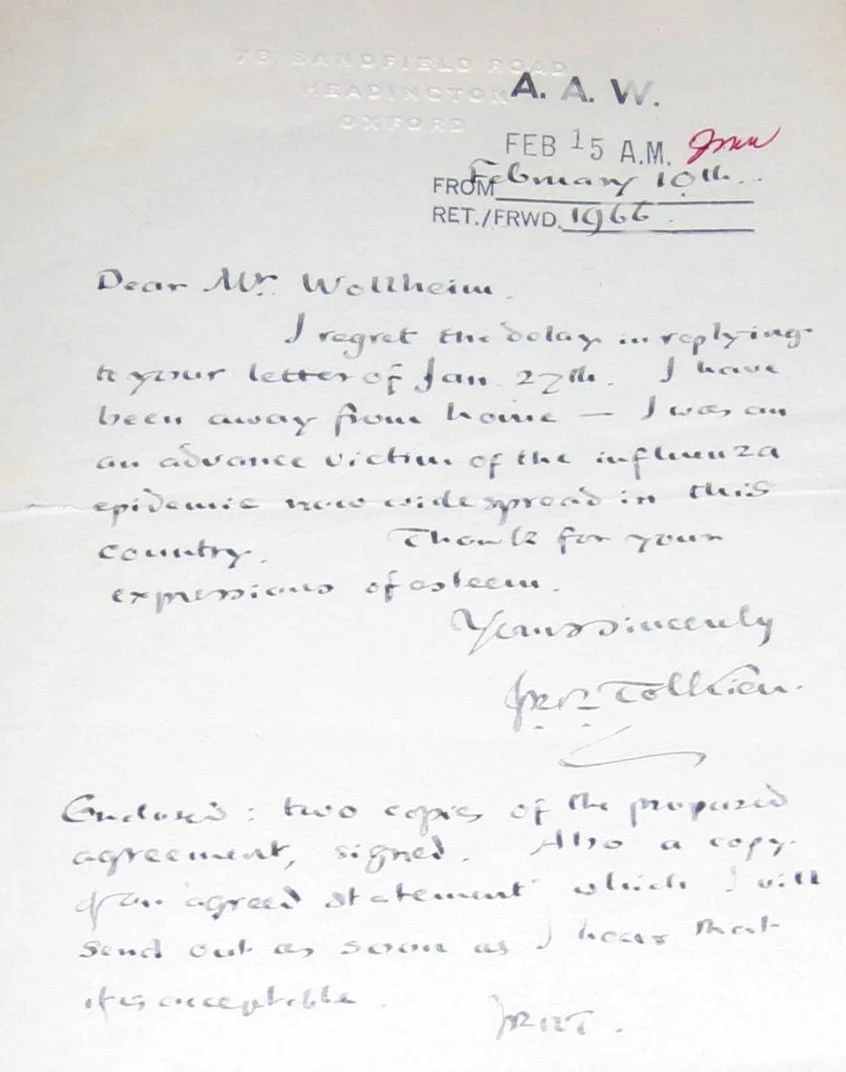 76 SANDFIELD ROAD
HEADINGTON
OXFORD
A. A. W.
FEB 15 A.M.
FROM February 10th.
RET./FRWD. 1966.
Dear Mr. Wollheim.
I regret the delay in replying
to your letter of Jan. 27th. I have
been away from home — I was an
an advance victim of the influenza
epidemic now widespread in this
country. Thank for your
expressions of esteem.
Yours sincerely
JRR Tolkien.
Enclosed: two copies of the proposed
agreement, signed. Also a copy
of an 'agreed statement' which I will
send out as soon as I hear that
it is acceptable.
JRRT.